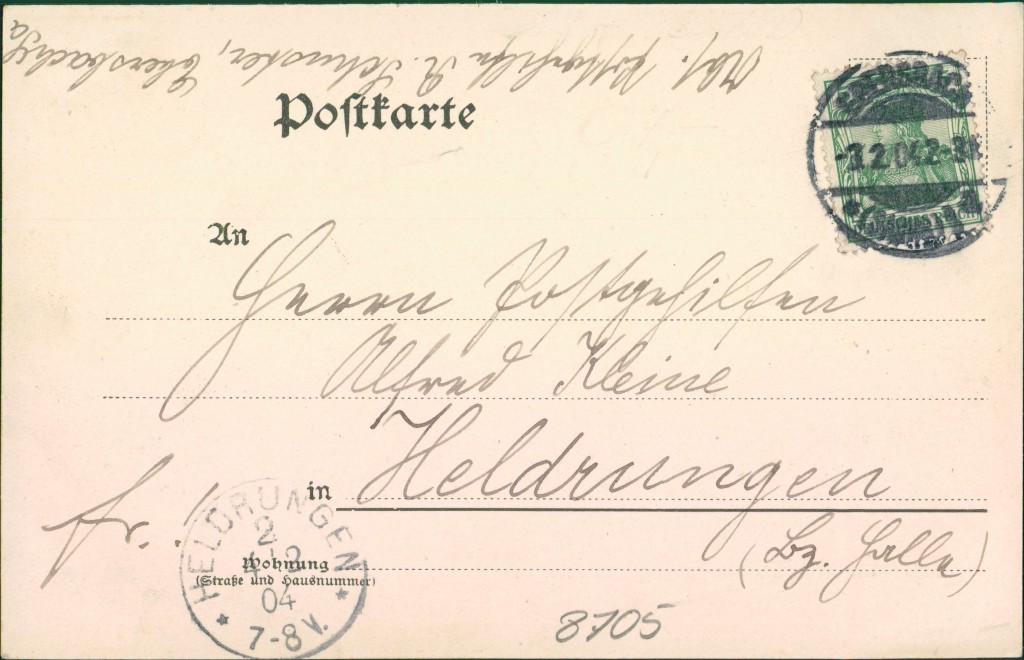 Abs. Postgehilfe R. Schuster, Ebersbach
Postkarte
-3.2.04.2-3
An
Herrn Postgehilfen
Alfred Kleine
in Heldrungen
(Bz. Halle)
fr.
HELDRUNGEN
04
7-8 V.
Wohnung
(Straße und Hausnummer)
8705